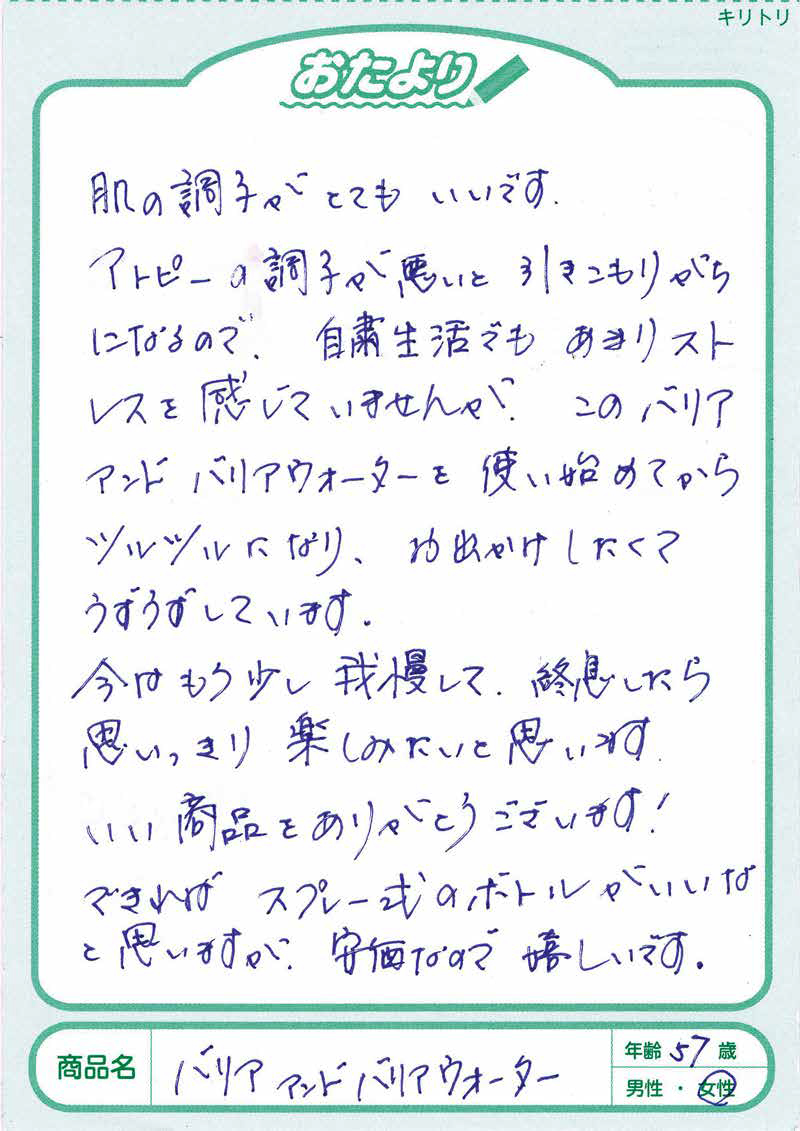 キリトリ
おたより
肌の調子がとてもいいです.
アトピーの調子が悪いと引きこもりがち
になるので、自粛生活でもあまりスト
レスを感じていませんが、このバリア
アンドバリアウォーターを使い始めてから
ツルツルになり、お出かけしたくて
うずうずしています.
今はもう少し我慢して、終息したら
思いっきり楽しみたいと思います.
いい商品をありがとうございます!
できればスプレー式のボトルがいいな
と思いますが、安価なので嬉しいです.
商品名 バリアアンドバリアウォーター
年齢 57 歳
男性・女性